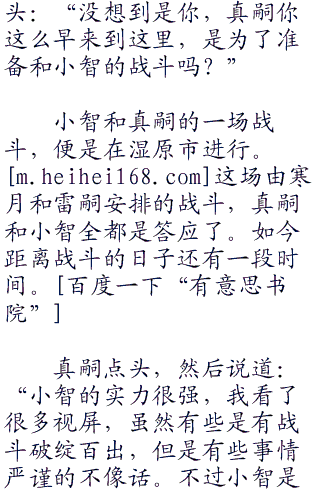 头：“没想到是你，真嗣你
这么早来到这里，是为了准
备和小智的战斗吗？”
小智和真嗣的一场战
斗，便是在湿原市进行。
[m.heihei168.com]这场由寒
月和雷嗣安排的战斗，真嗣
和小智全都是答应了。如今
距离战斗的日子还有一段时
间。[百度一下“有意思书
院”]
真嗣点头，然后说道：
“小智的实力很强，我看了
很多视屏，虽然有些是有战
斗破绽百出，但是有些事情
严谨的不像话。不过小智是